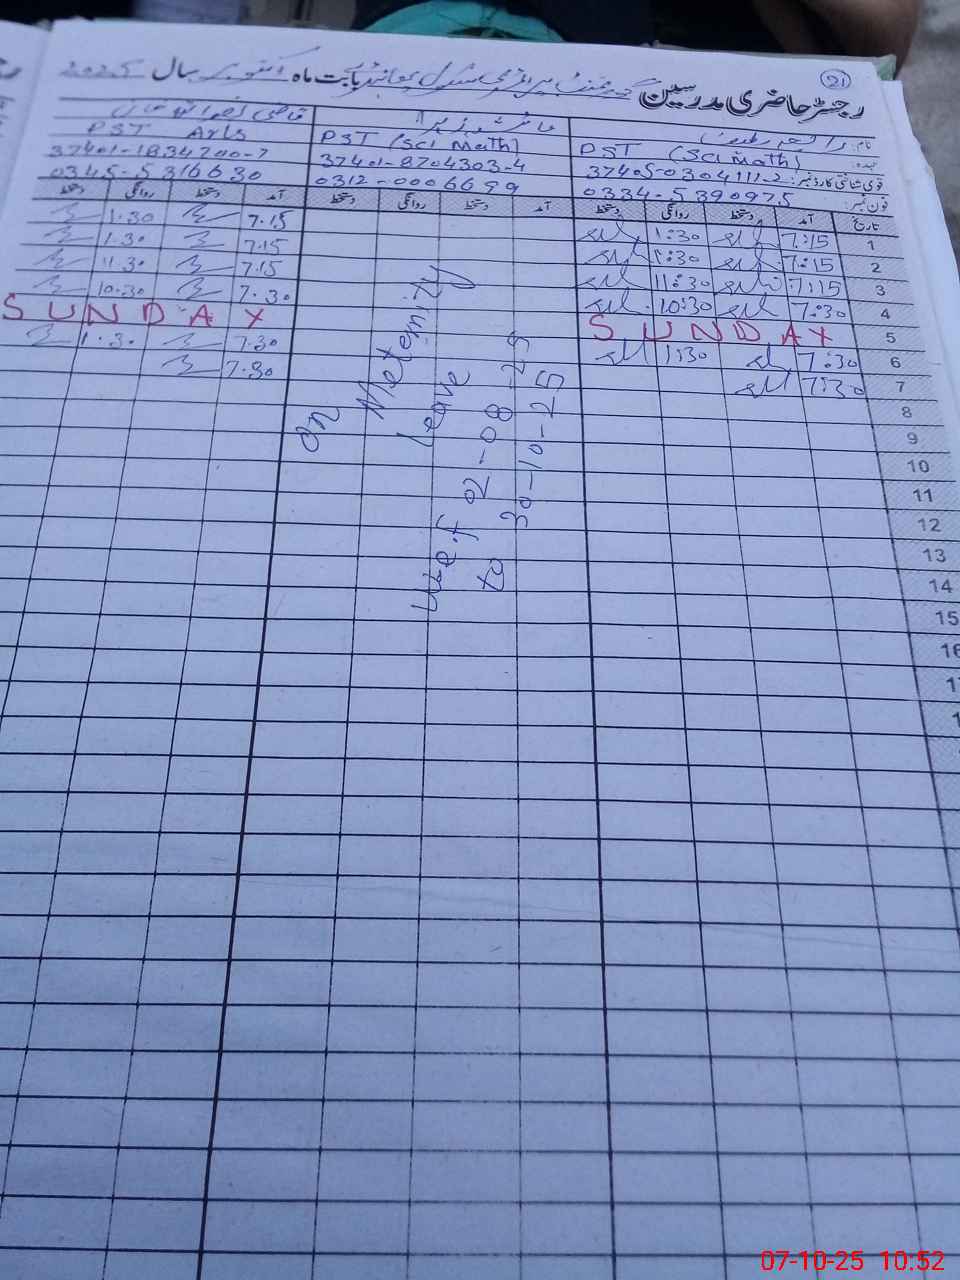 21
رجسٹر حاضری مدرسین گورنمنٹ پرائمری سکول بابت ماہ اکتوبر سال 2025
نام:
عہدہ: PST (Sci Math) PST (Sci Math) PST Arts
قومی شناختی کارڈ نمبر: 37405-0304111-2 37401-8704303-4 37401-1834700-7
فون نمبر: 0334-5390975 0312-0006699 0345-5316630
تاریخ آمد دستخط روانگی دستخط آمد دستخط روانگی دستخط آمد دستخط روانگی دستخط
1 7:15 1:30 7.15 1.30
2 7:15 1:30 7.15 1.30
3 7:15 11:30 7.15 11.30
4 7:30 10:30 7.30 10.30
5 SUNDAY SUNDAY
6 7:30 1:30 7.30 1.30
7 7:30 7.30
8
9
10
11
12
13
14
15
16
On Meternity
Leave
w.e.f 02-08-25
to 30-10-25
07-10-25 10:52